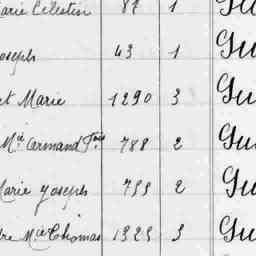 arie Célestin 87 1 Gu
oseph 43 1 Gu
et Marie 1290 3 Gu
Mie Armand Fois 788 2 Gu
Marie Joseph 755 2 Gu
re Mie Thomas 1325 3 Gu